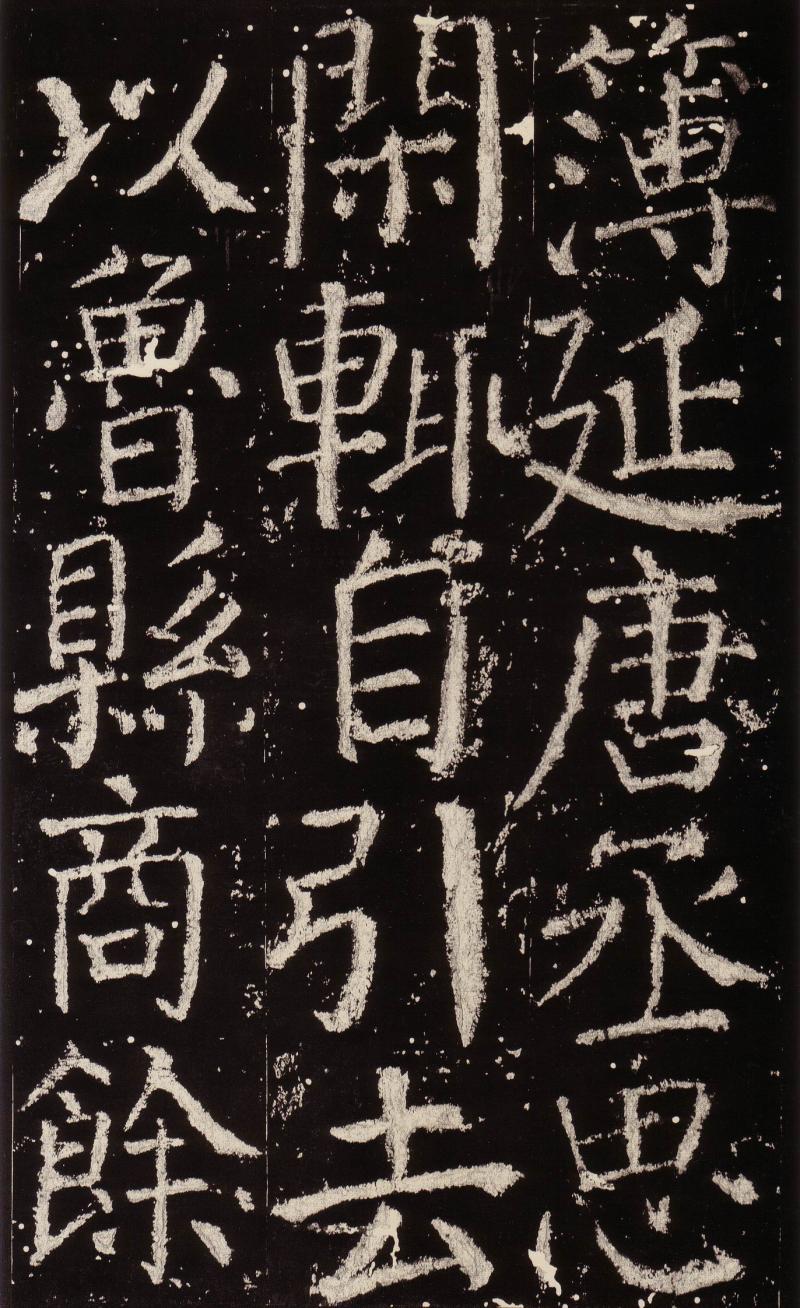 簿延唐丞思
閑輙自引去
以魯縣商餘